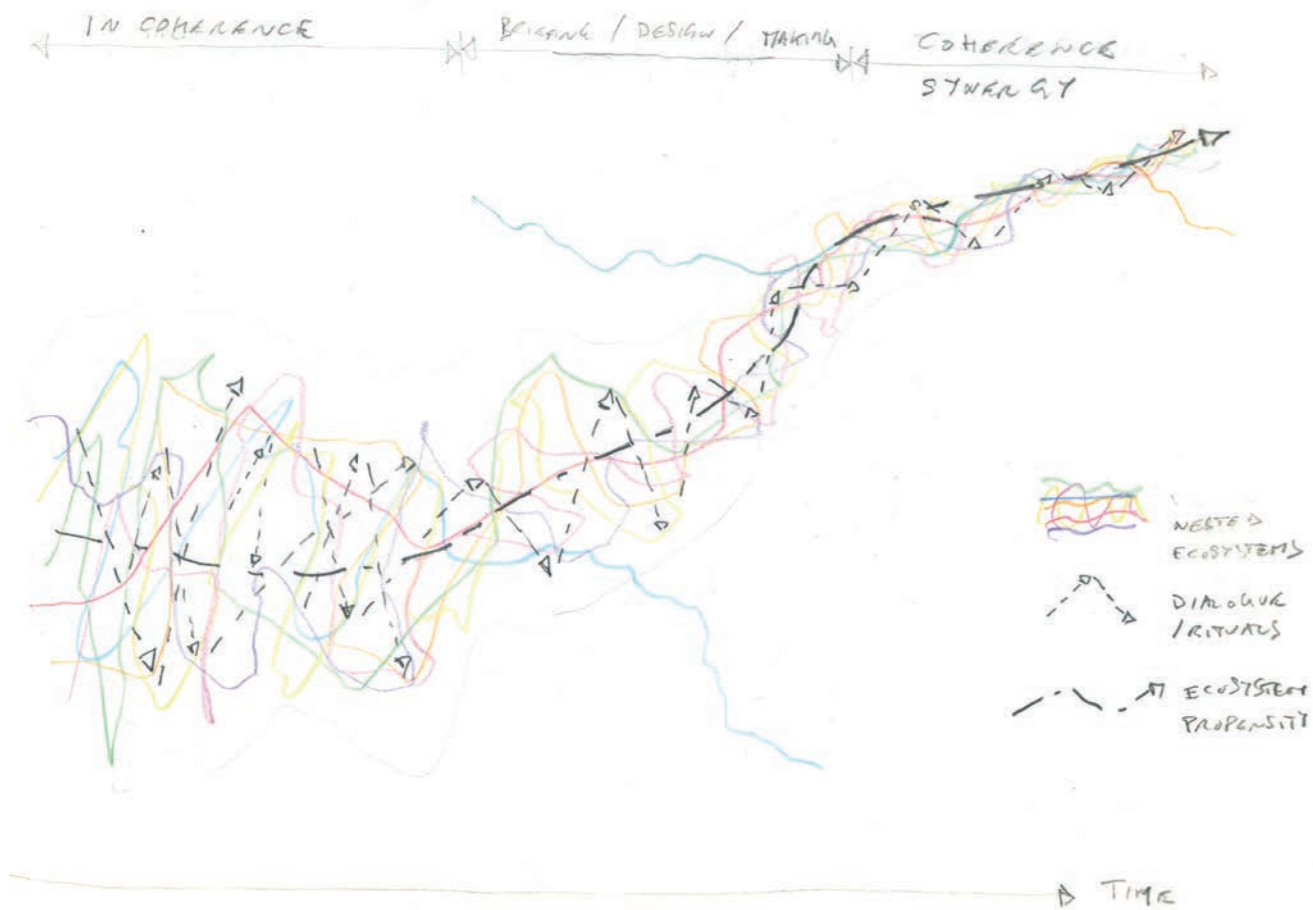 IN COHERENCE
BRIEFING / DESIGN / MAKING
COHERENCE
SYNERGY
NESTED
ECOSYSTEMS
DIALOGUE
/RITUALS
ECOSYSTEM
PROPENSITY
TIME